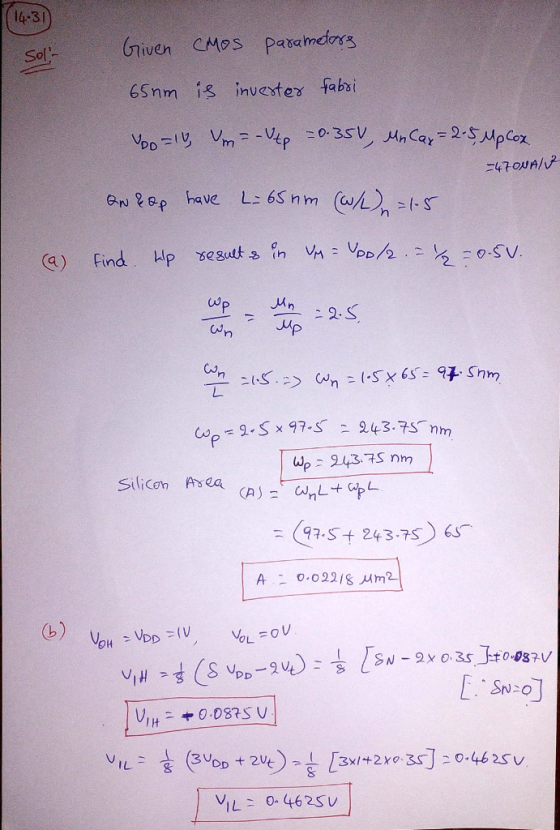 14.31
Sol:-
Given CMOS parameters
65nm is inverter fabri
VDD = 1V, Vm = -Vtp = 0.35V, μnCax = 2.5 μpCox
= 470μA/V²
QN & Qp have L = 65nm (W/L)n = 1.5
(a) Find Wp results in VM = VDD/2. = 1/2 = 0.5V.
ωp/ωn = μn/μp = 2.5
ωn/L = 1.5. => ωn = 1.5 × 65 = 97.5nm
ωp = 2.5 × 97.5 = 243.75 nm
Wp = 243.75 nm
Silicon Area (A) = WnL + WpL
= (97.5 + 243.75) 65
A = 0.02218 μm2
(b) VOH = VDD = 1V, VOL = 0V
VIH = 1/8 (5 VDD - 2Vt) = 1/8 [SN - 2 × 0.35] = 0.087V
[∵ SN = 0]
VIH = 0.0875V
VIL = 1/8 (3VDD + 2Vt) = 1/8 [3×1+2×0.35] = 0.4625V
VIL = 0.4625V